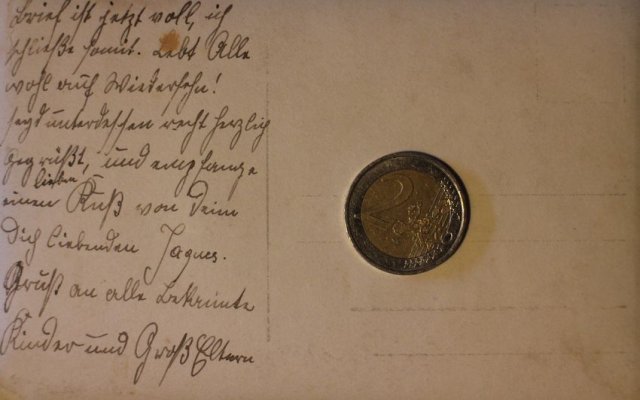 Brief ist jetzt voll, ich
schließe somit. Lebt Alle
wohl auf Wiedersehn!
seyd unterdessen recht herzlich
gegrüßt, und empfange
lieben
einen Kuß von Deim
Dich liebenden Jaques.
Gruß an alle bekannte
Kinder und Groß Eltern
2
EURO